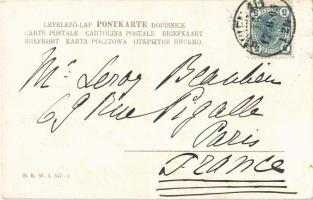 LEVELEZŐ-LAP POSTKARTE DOPISNICE
CARTE POSTALE CARTOLINA POSTALE BRIEFKAART
BREFKORT KARTA POCZTOWA ОТКРЫТОЕ ПИСЬМО.
Mr. Leroy Beaulieu
69 Rue Pigalle
Paris
France
B. K. W. I. 547-4